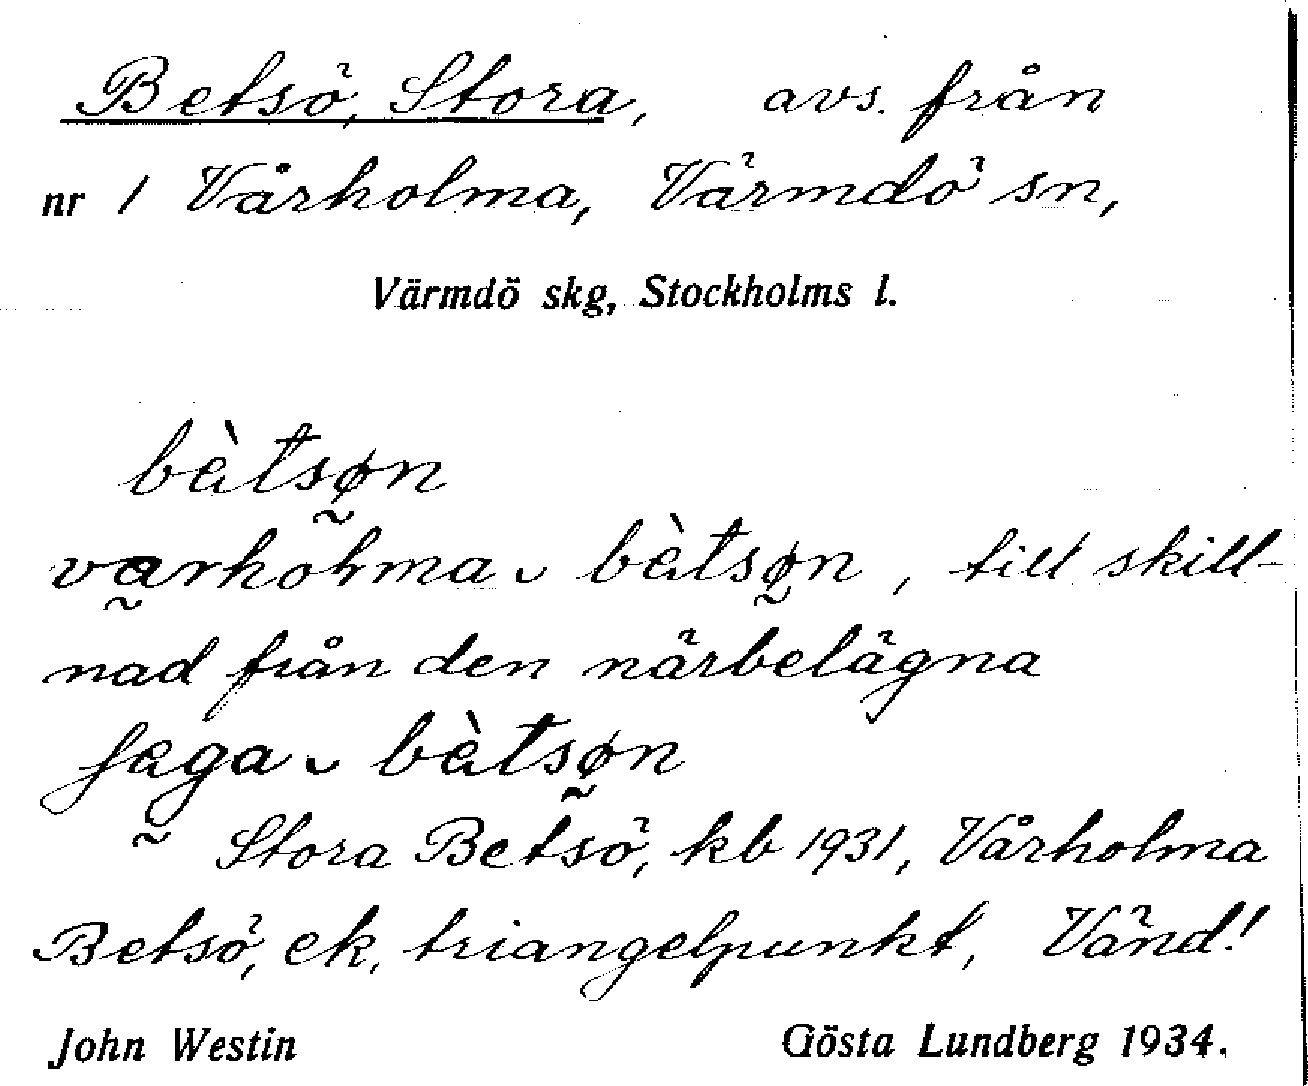 Betsö, Stora, avs. från
nr 1 Vårholma, Värmdö sn,
Värmdö skg, Stockholms l.
bètsøn
varholma ᴗ bètsøn, till skill-
nad från den närbelägna
faga ᴗ bètsøn
Stora Betsö, kb 1931, Vårholma
Betsö, ek, triangelpunkt, Vänd!
John Westin Gösta Lundberg 1934.